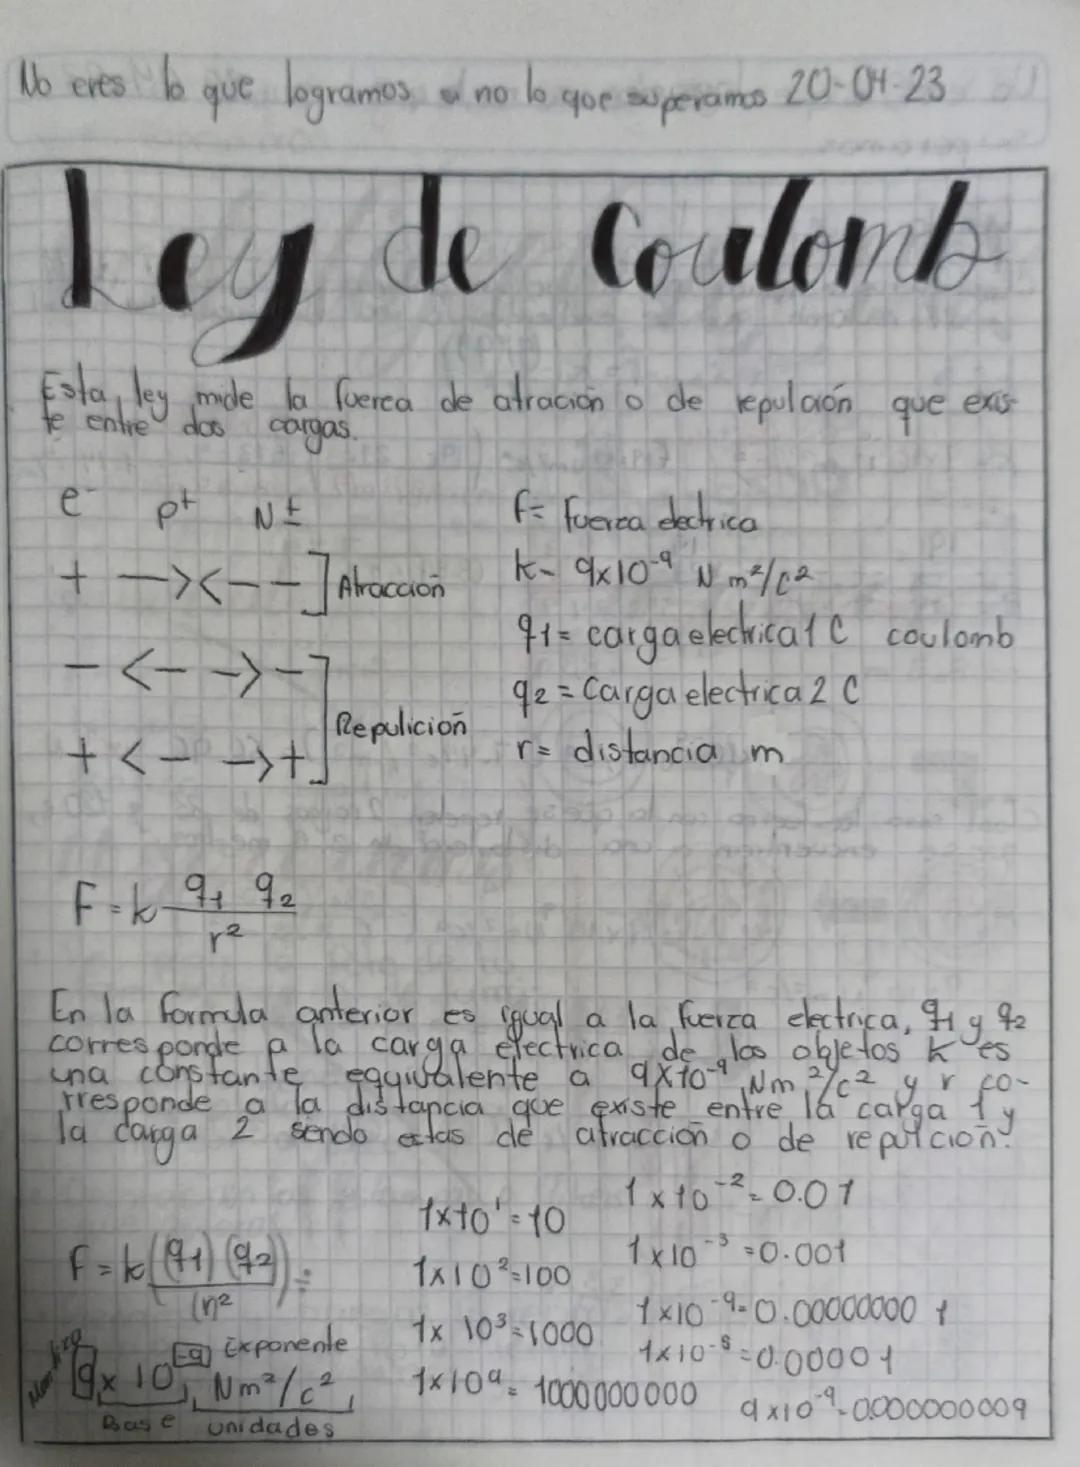 No eres lo que logramos si no lo que superamos 20-04-23
Ley de Coulomb
Esta ley mide la fuerca de atración o de repulción que exis-
te entre dos cargas.
e⁻ p⁺ N±
+ —><— - Atracción
- <— —> -
Repulición
+ <— —> +
f= fuerza electrica
k- 9x10⁻⁹ N m²/c²
q1= carga electrica 1 C coulomb
q2 = Carga electrica 2 C
r= distancia m
F = k q1 q2 / r²
En la formula anterior es igual a la fuerza electrica, q1 y q2
corresponde a la carga electrica de los objetos k es
una constante equivalente a 9x10⁻⁹ Nm²/c² y r co-
rresponde a la distancia que existe entre la carga 1 y
la carga 2 sendo estas de atracción o de repulción.
F = k (q1) (q2) / (r)² =
9 x 10 -9 Exponente
Nm²/c²
Base unidades
1x10¹=10
1x10²=100
1x 10³=1000
1x10⁹= 1000000000
1 x 10⁻²= 0.01
1x10⁻³ =0.001
1x10⁻⁹=0.00000000 1
1x10⁻⁵=0.00001
9x10⁻⁹=0.000000009